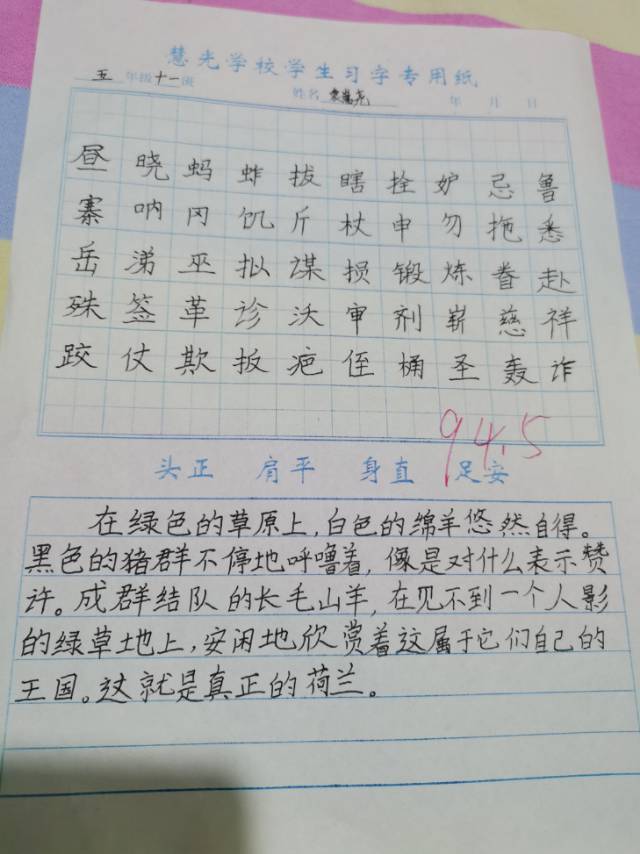 慧光学校学生习字专用纸
五年级十一班 姓名 年 月 日
昼晓蚂蚱拔瞎拴妒忌鲁
寨呐冈饥斤杖申勿拖悉
岳涕巫拟谋损锻炼眷赴
殊签革诊沃审剂崭慈祥
跤仗欺扳疤侄桶圣轰诈
94.5
头正 肩平 身直 足安
在绿色的草原上,白色的绵羊悠然自得。
黑色的猪群不停地呼噜着,像是对什么表示赞
许。成群结队的长毛山羊,在见不到一个人影
的绿草地上,安闲地欣赏着这属于它们自己的
王国。这就是真正的荷兰。